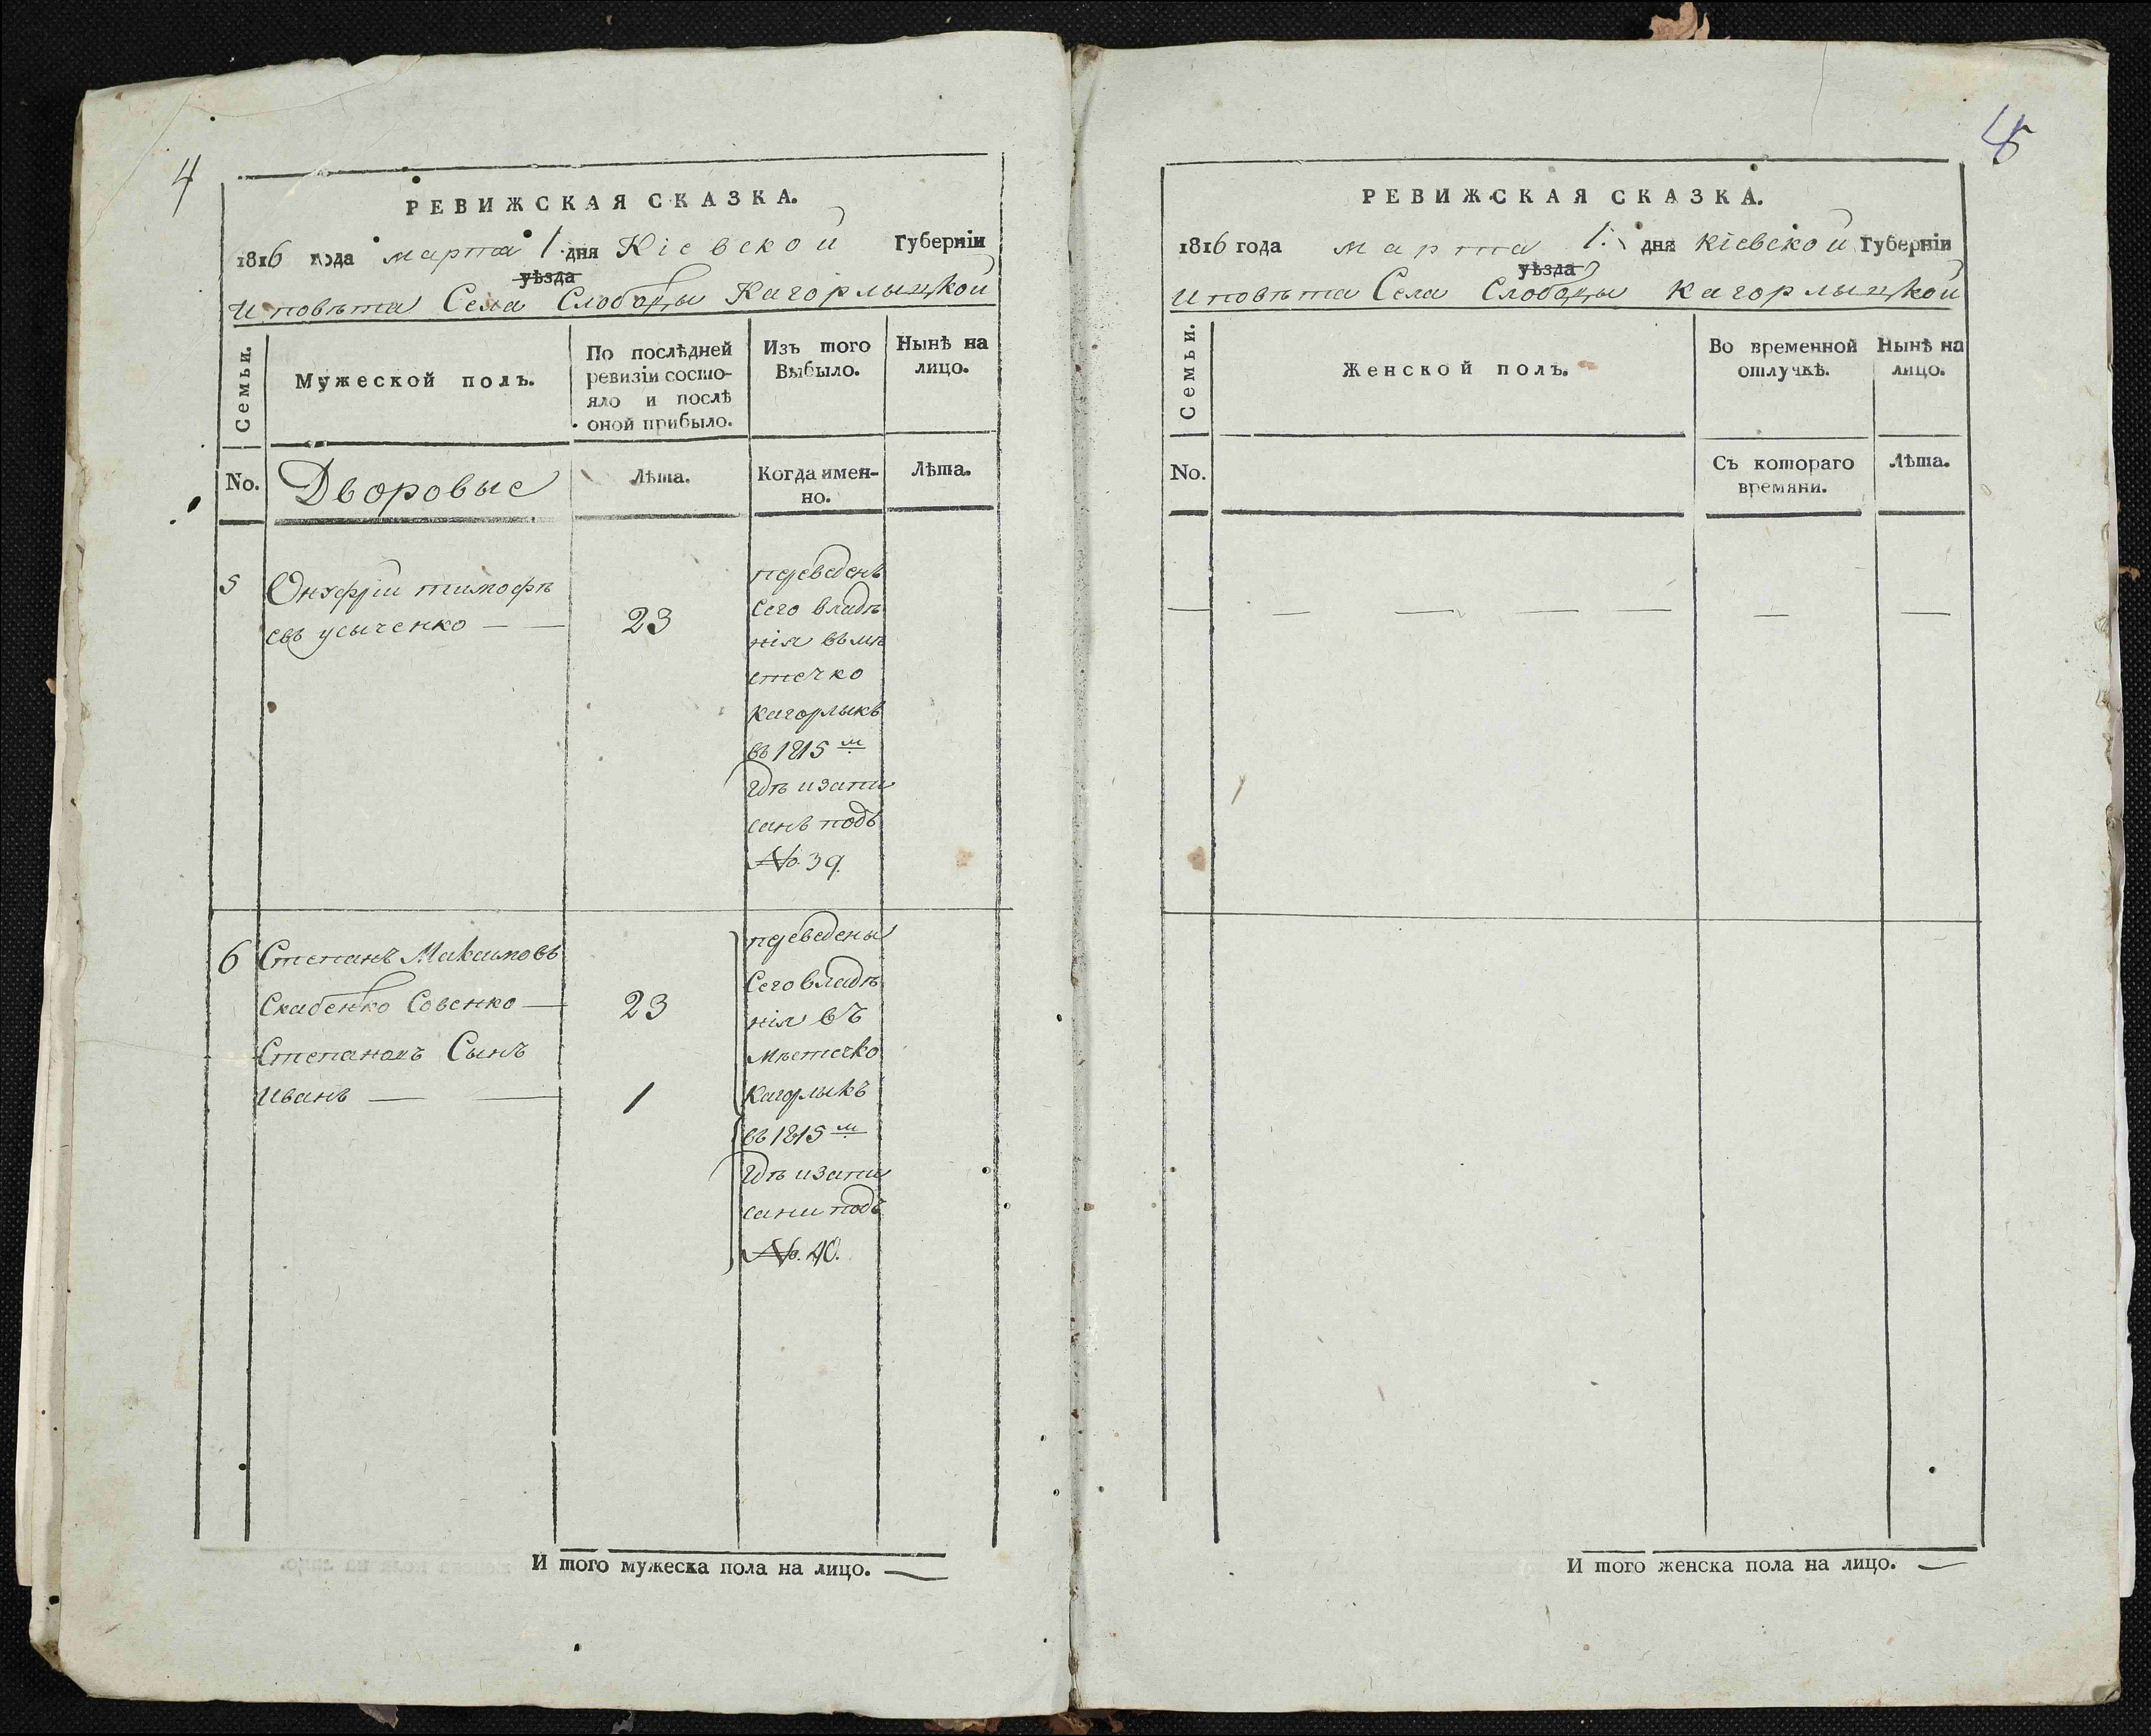 4
РЕВИЖСКАЯ СКАЗКА.
1816 года марта 1. дня Кіевской Губерніи
уѣзда
и повѣта Села Слободы Кагорлыцкой
Семьи.
Мужеской полъ.
По послѣдней ревизіи состо-
яло и послѣ
оной прибыло.
Изъ того
Выбыло.
Нынѣ на
лицо.
No.
Дворовые
Лѣта.
Когда имен-
но.
Лѣта.
5
Онуфрій тимофѣ
евъ усыченко — —
23
переведенъ
Сего владѣ
нія въ мѣ
стечко
Кагорлыкъ
въ 1815 м
гдѣ и запи
санъ подъ
No. 39.
6
Степанъ Максимовъ
Скабенко Совенко —
23
Степановъ Сынъ
Иванъ — —
1
переведены
Сего владѣ
нія въ
Мѣстечко
Кагорлыкъ
въ 1815 м
гдѣ и запи
сани подъ
No. 40.
И того мужеска пола на лицо. —
РЕВИЖСКАЯ СКАЗКА.
1816 года марта 1. дня Кіевской Губерніи
уѣзда
и повѣта Села Слободы Кагорлыцкой
Семьи.
Женской полъ.
Во временной
отлучкѣ.
Нынѣ на
лицо.
No.
Съ котораго
времяни.
Лѣта.
— — — — — — —
И того женска пола на лицо. —